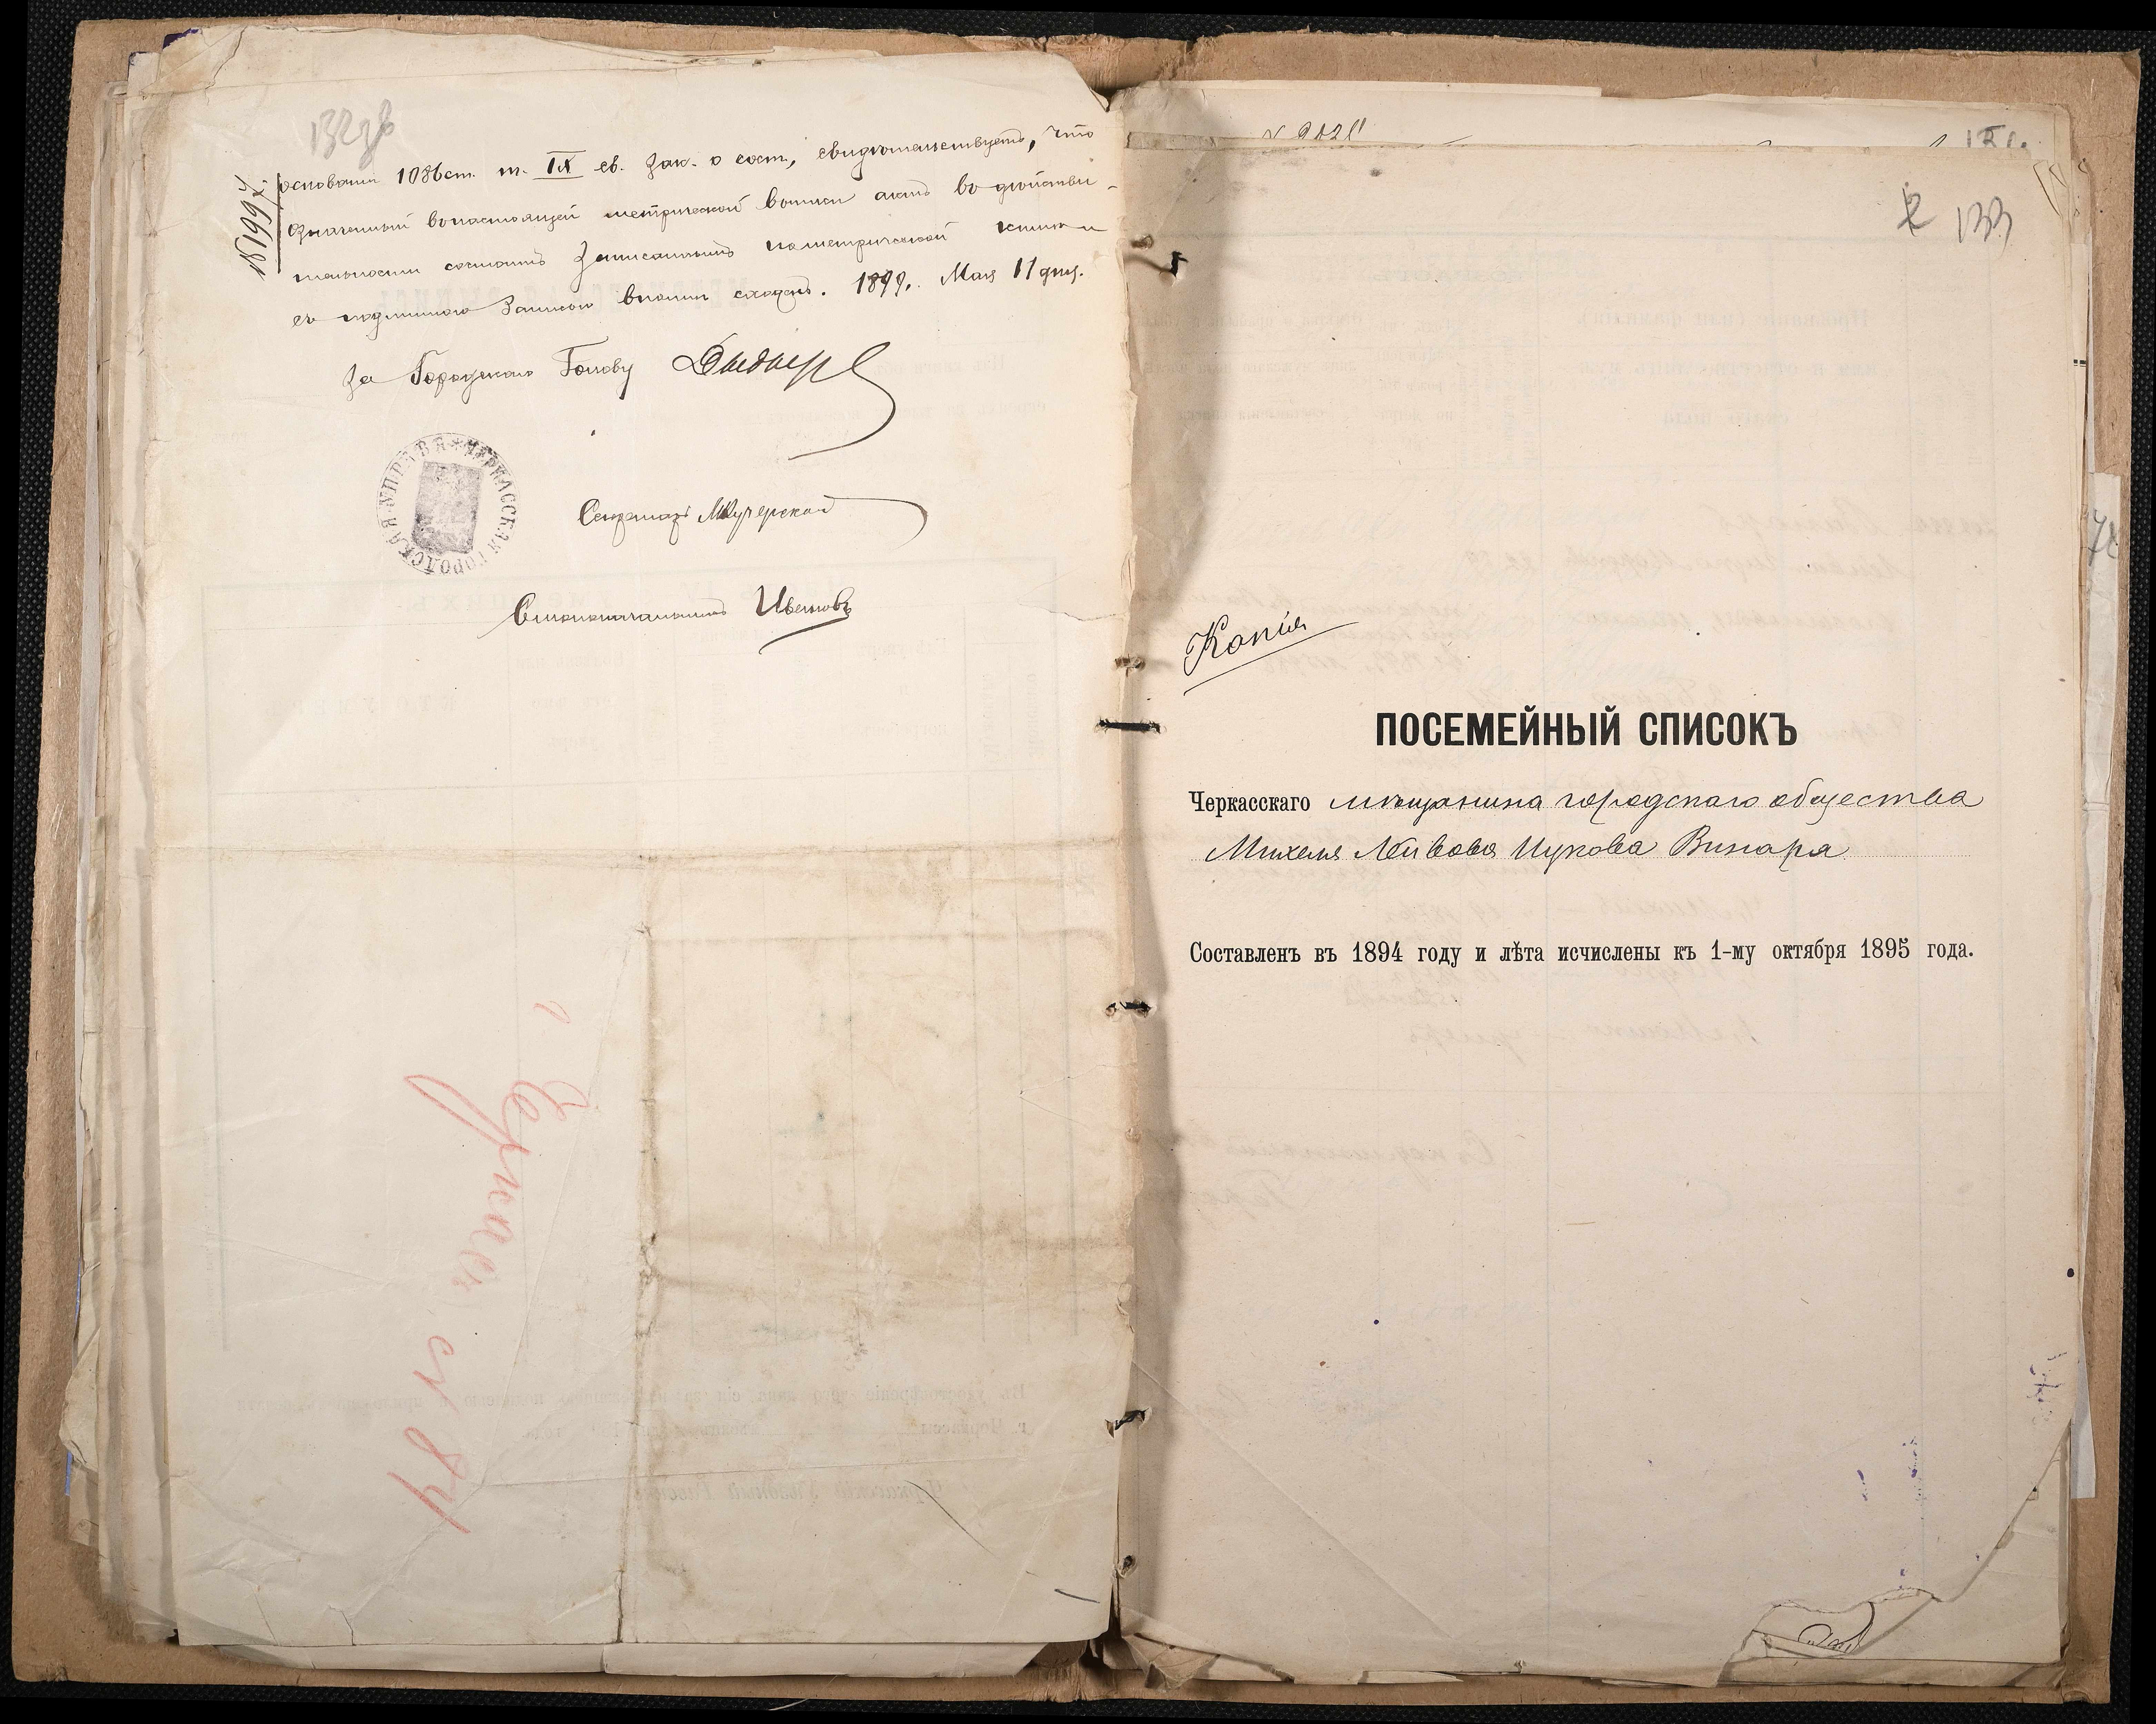 132об
основании 1086 ст. т. IX св. зак. о сост., свидѣтельствуетъ, что
№ 1997.
значенный въ настоящей метрической выписи актъ въ дѣйстви-
тельности состоитъ записаннымъ по метрической книги и
съ подлинною записью вполнѣ сходенъ. 1899 г. Мая 11 дня.
За Городского Голову
ЧЕРКАССКАЯ ГОРОДСКАЯ УПРАВА
Секретарь Мкучерской
Столоначальникъ Ивановъ
Черкас. № 84
№ 9021
133
Копія
ПОСЕМЕЙНЫЙ СПИСОКЪ
Черкасскаго мѣщанина городскаго общества
Михеля Лейбова Цукова Винара
Составленъ въ 1894 году и лѣта исчислены къ 1-му октября 1895 года.